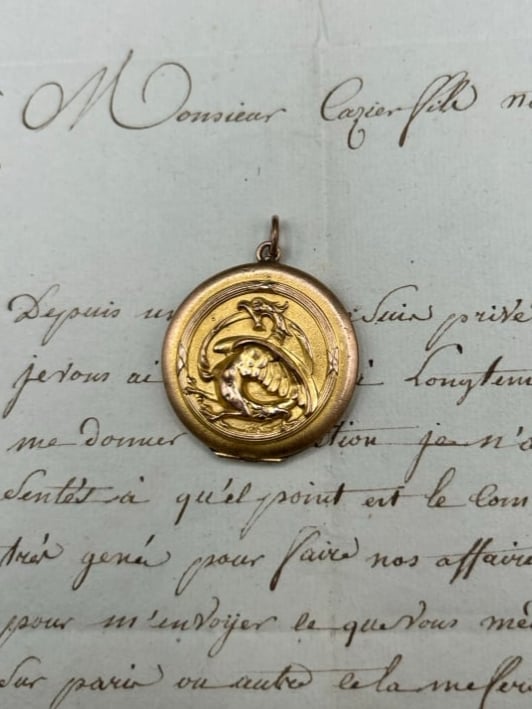 Monsieur Cazier fils
Depuis Suis privé
je vous ai Longtem
me donner tion je n'a
Sentés à qu'el point est le Com
trés gené pour faire nos affaire
pour m'envoÿer ce que vous me
Sur paris ou autre cela me fera